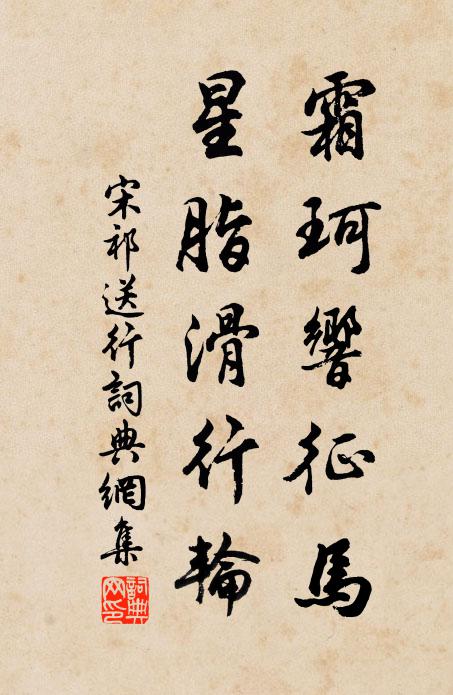 霜珂響征馬
星脂滑行輪
宋祁送行詞典網集
詞典網印